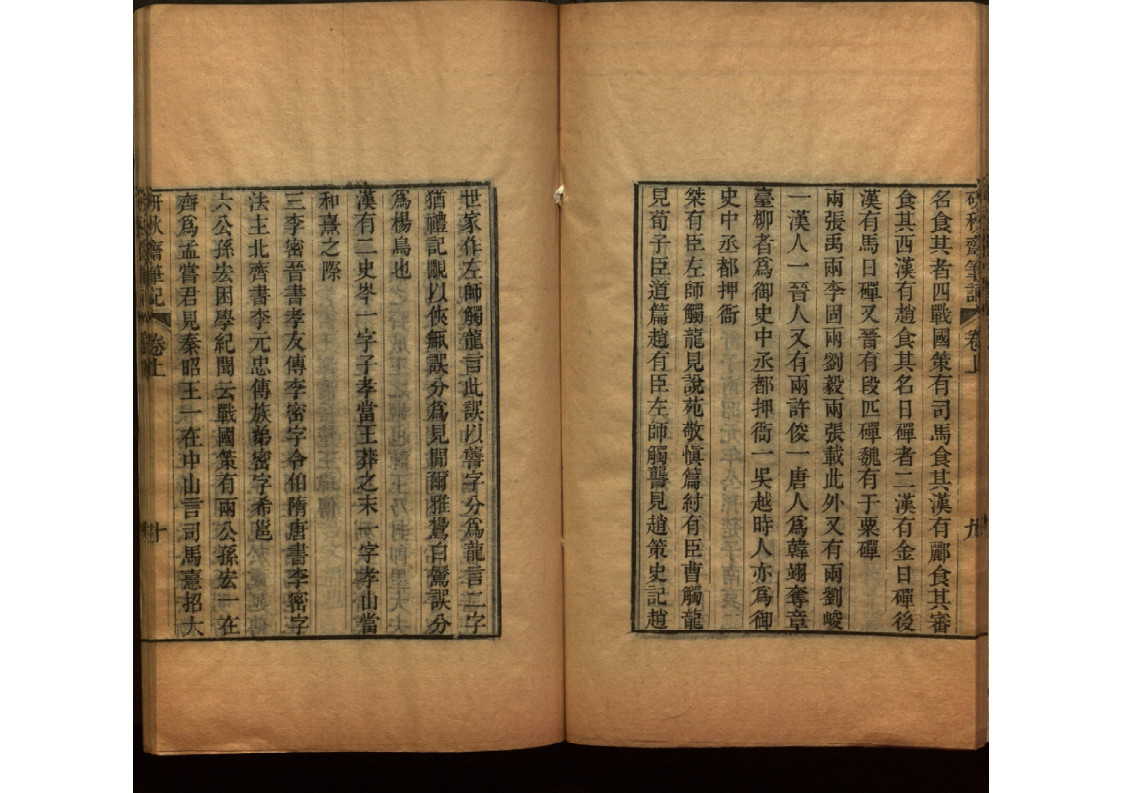 研秋齋筆記 卷上 九
名食其者四戰國策有司馬食其漢有酈食其審
食其西漢有趙食其名日磾者二漢有金日磾後
漢有馬日磾又晉有段匹磾魏有于粟磾
兩張禹兩李固兩劉毅兩張載此外又有兩劉峻
一漢人一晉人又有兩許俊一唐人爲韓翊奪章
臺柳者爲御史中丞都押衙一吳越時人亦爲御
史中丞都押衙
桀有臣左師觸龍見說苑敬慎篇紂有臣曹觸龍
見荀子臣道篇趙有臣左師觸讋見趙策史記趙
世家作左師觸龍言此誤以讋字分爲龍言二字
猶禮記覵以俠甒誤分爲見間爾雅鷽白鷢誤分
爲楊鳥也
漢有二史岑一字子孝當王莽之末一字孝山當
和熹之際
三李密晉書孝友傳李密字令伯隋唐書李密字
法主北齊書李元忠傳族弟密字希邕
六公孫宏困學紀聞云戰國策有兩公孫宏一在
齊爲孟嘗君見秦昭王一在中山言司馬憙招大
研秋齋筆記 卷上 十